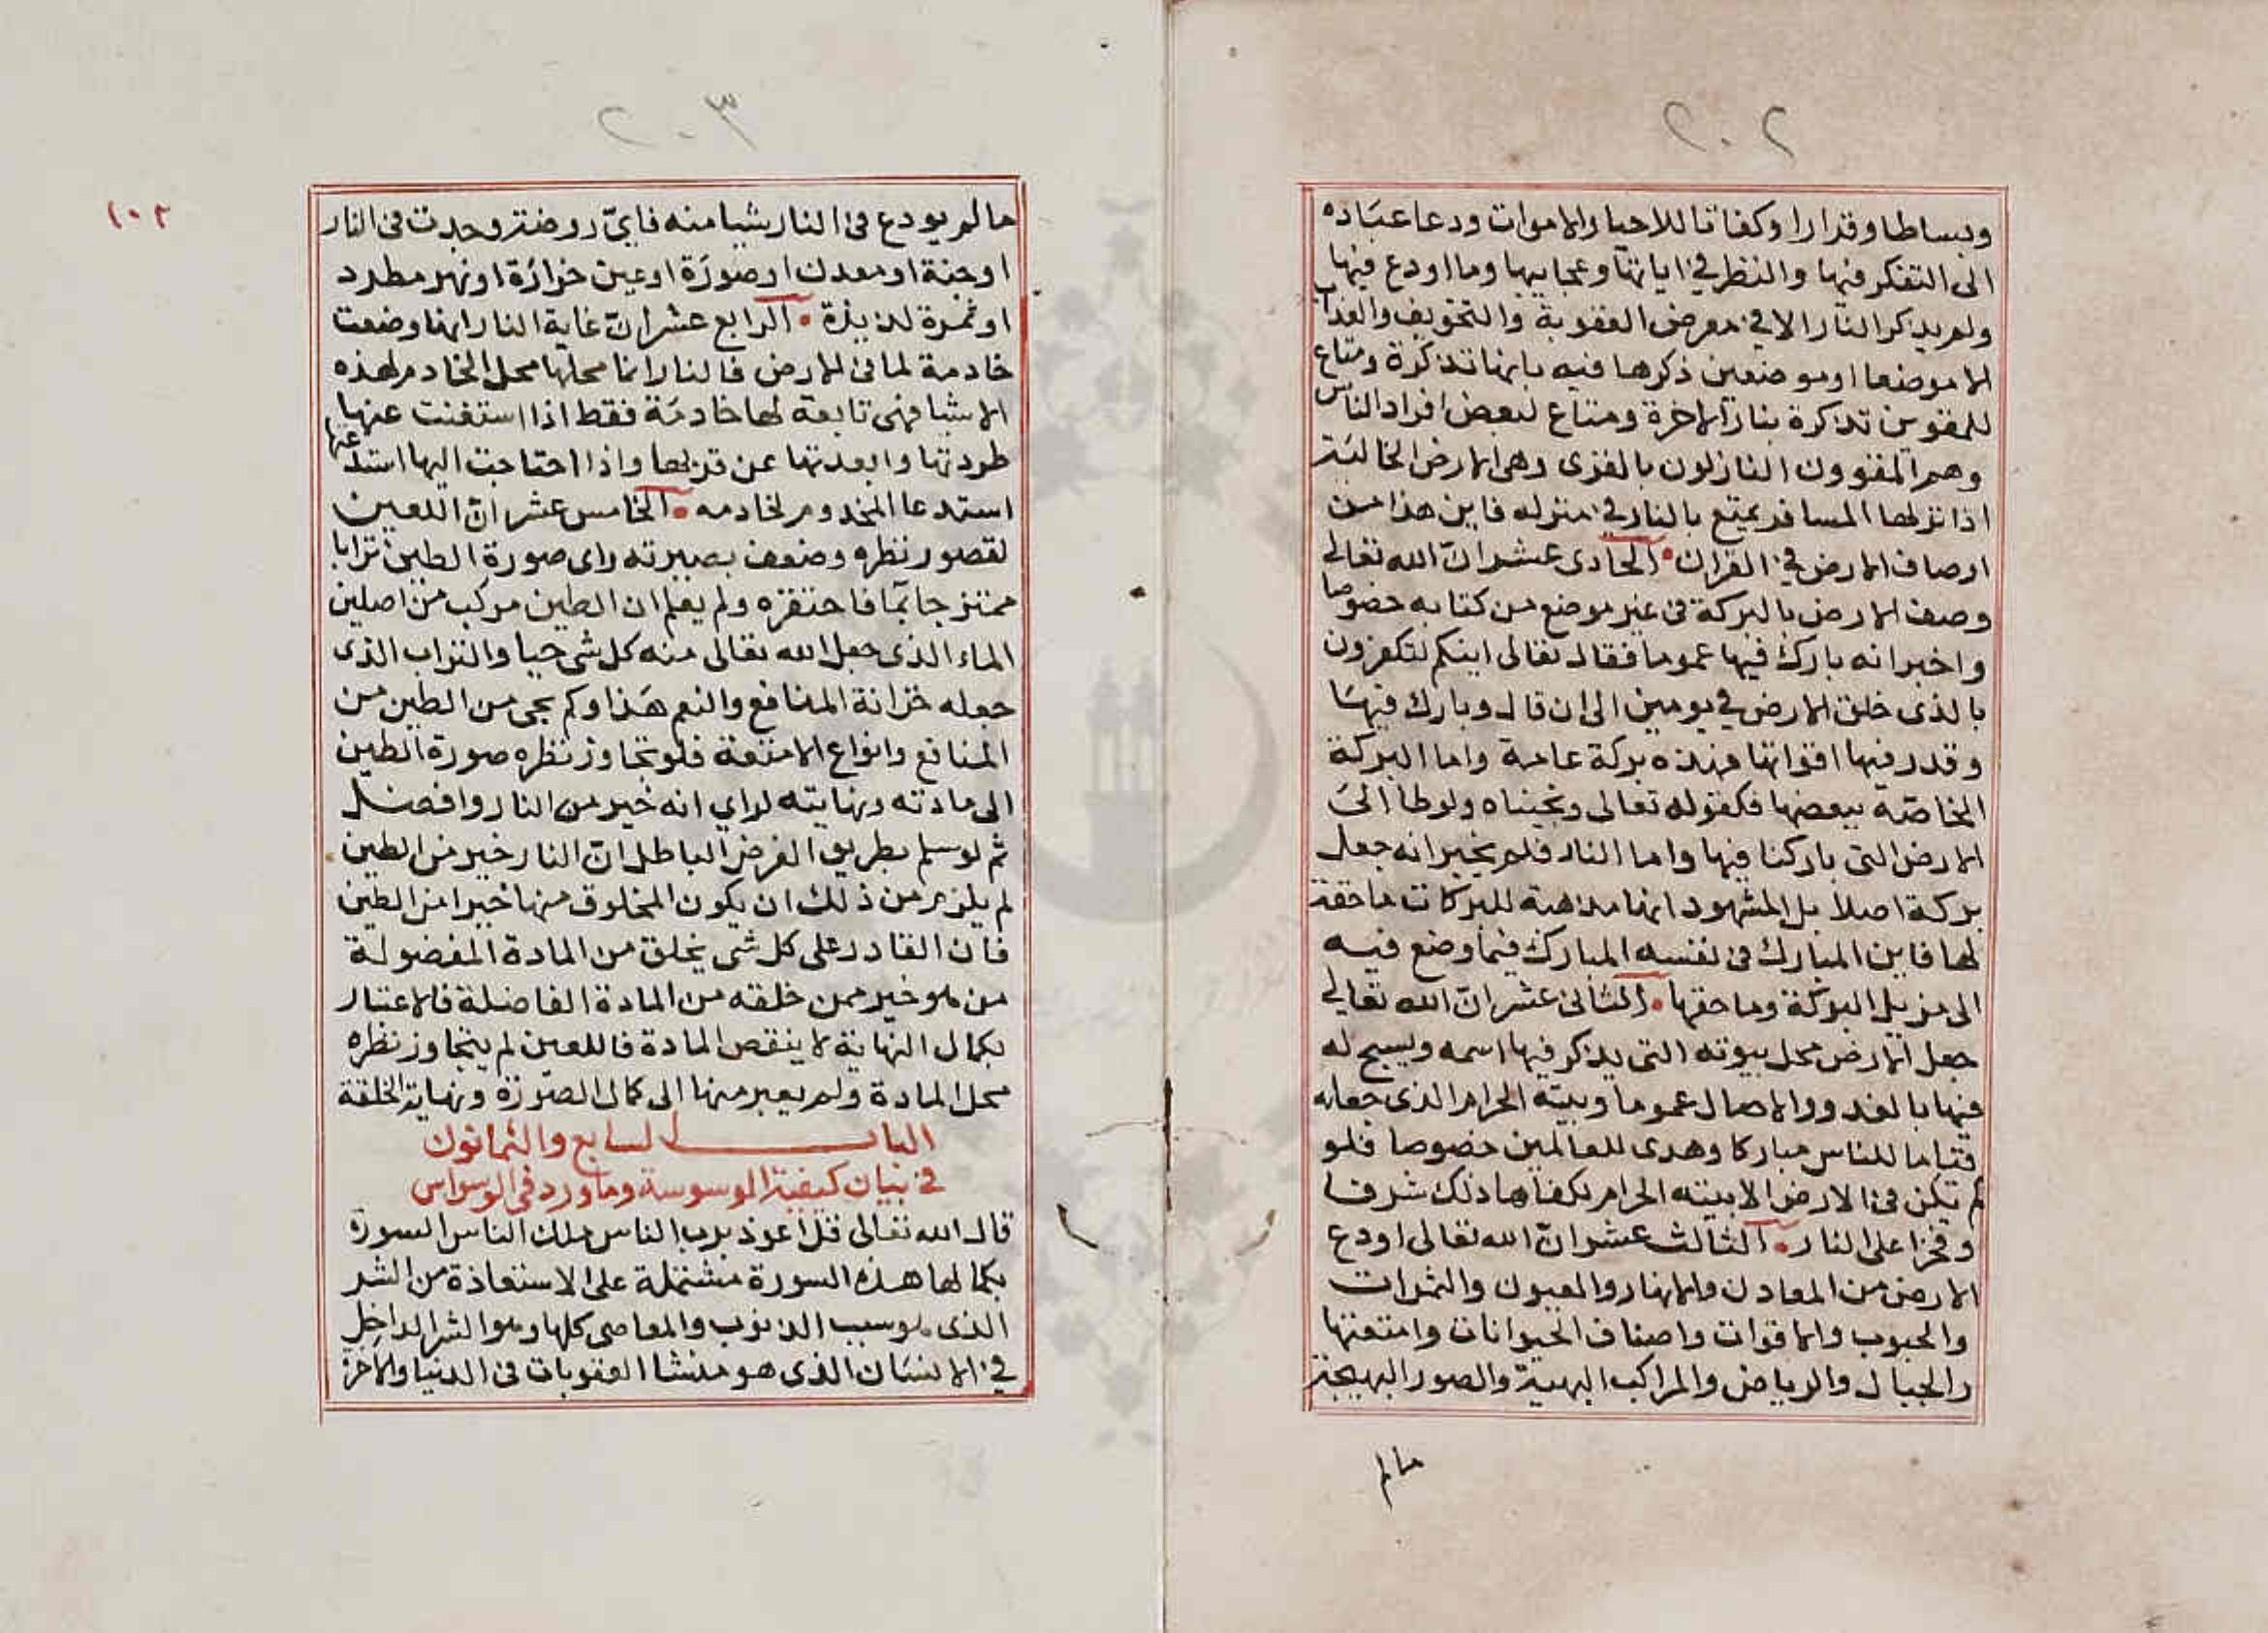 ٢٠٢
وبساطا وقرارا وكفاتا للاحيا والاموات ودعا عباده
الى التفكر فيها والنظر في اياتها وعجايبها وما اودع فيها
ولم يذكر النار الا في معرض العقوبة والتخويف والعذاب
الا موضعا او موضعين ذكرها فيه بانها تذكرة ومتاع
للمقوين تذكرة بنار الاخرة ومتاع لبعض افراد الناس
وهم المقوون النازلون بالقوى وهي الارض الخالية
اذا نزلها المسافر يمتع بالنار في منزله فاين هذا من
اوصاف الارض في القران • الحادى عشر ان الله تعالى
وصف الارض بالبركة في غير موضع من كتابه خصوصا
واخبر انه بارك فيها عموما فقال تعالى اينكم لتكفرون
بالذى خلق الارض في يومين الى ان قال وبارك فيها
وقدر فيها اقواتها فهذه بركة عامة واما البركة
الخاصة ببعضها فكقوله تعالى ونجيناه ولوطا الى
الارض التى باركنا فيها واما النار فلم يخبر انه جعل
بركة اصلا بل المشهود انها مذهبة للبركات ماحقة
لها فاين المبارك في نفسه المبارك فيما وضع فيه
الى مزيل البركة وماحقها • الثانى عشر ان الله تعالى
جعل الارض محل بيوته التى يذكر فيها اسمه ويسبح له
فيها بالغدو والاصال عموما وبيته الحرام الذى جعله
قياما للناس مباركا وهدى للعالمين خصوصا فلو
لم تكن في الارض الا بيته الحرام لكفاها ذلك شرفا
وفخرا على النار • الثالث عشر ان الله تعالى اودع
الارض من المعادن والانهار والعيون والثمرات
والحبوب والاقوات واصناف الحيوانات وامتعتها
والجبال والرياض والمراكب البهية والصور البهيجة
مالم
٢٠٣
١٠٢
مالم يودع في النار شيا منه فاي روضة وجدت في النار
او جنة او معدن او صورة او عين خرارة او نهر مطرد
او ثمرة لذيذة • الرابع عشر ان غاية النار انها وضعت
خادمة لما في الارض فالنار انما محلها محل الخادم لهذه
الاشيا فهي تابعة لها خادمة فقط اذا استغنت عنها
طردتها وابعدتها عن قربها واذا احتاجت اليها استدعتها
استدعا المخدوم لخادمه • الخامس عشر ان اللعين
لقصور نظره وضعف بصيرته راى صورة الطين ترابا
ممتزجا بما فاحتقره ولم يعلم ان الطين مركب من اصلين
الماء الذى جعل الله تعالى منه كل شى حيا والتراب الذى
جعله خزانة المنافع والنعم هذا وكم يجى من الطين من
المنافع وانواع الامتعة فلو تجاوز نظره صورة الطين
الى مادته ونهايته لراي انه خير من النار وافضل
ثم لو سلم بطريق الفرض الباطل ان النار خير من الطين
لم يلزم من ذلك ان يكون المخلوق منها خيرا من الطين
فان القادر على كل شى يخلق من المادة المفضولة
من هو خير ممن خلقه من المادة الفاضلة فالاعتبار
بكمال النهاية لا ينقص المادة فاللعين لم يتجاوز نظره
محل المادة ولم يعبر منها الى كمال الصورة ونهاية الخلقة
الباب السابع والثمانون
في بيان كيفية الوسوسة وما ورد فى الوسواس
قال الله تعالى قل اعوذ برب الناس ملك الناس السورة
بكمالها هذه السورة مشتملة على الاستعاذة من الشر
الذى هو سبب الذنوب والمعاصى كلها وهو الشر الداخل
في الانسان الذى هو منشا العقوبات فى الدنيا والاخرة